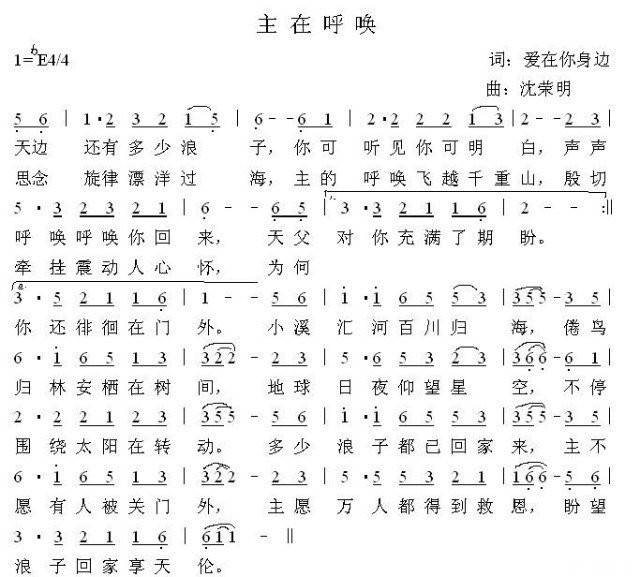 主在呼唤
1=ᵇE4/4 词：爱在你身边
曲：沈荣明
5 6 | 1·2 3 2 1 5 | 6 - - 6 1 | 2·2 2 2 1 3 | 2 - - 2 3 |
天边 还有多少浪 子，你可 听见你可明 白，声声
思念 旋律漂洋过 海，主的 呼唤飞越千重山，殷切
5·3 2 3 2 1 | 6 - - 6 5 | 3·3 2 1 1 6 | 2 - - :||
呼唤呼唤你回 来，天父 对你充满了期 盼。
牵挂震动人心 怀，为何
3·5 2 1 1 6 | 1 - - 5 5 | i·i 6 5 5 3 | 3 5 5 - 3 5 |
你还徘徊在门 外。小溪 汇河百川归 海，倦鸟
6·i 6 5 1 3 | 3 2 2 - 2 3 | 5·5 6 5 3 2 | 3 6 6 - 6 1 |
归林安栖在树 间，地球 日夜仰望星 空，不停
2·2 2 1 2 3 | 3 5 5 - 5 5 | i·i 6 5 5 3 | 3 5 5 - 3 5 |
围绕太阳在转 动。多少 浪子都已回家 来，主不
6·i 6 5 1 3 | 3 2 2 - 2 3 | 5·5 5 3 2 1 | 1 6 6 - 5 6 |
愿有人被关门 外，主愿 万人都得到救 恩，盼望
3·3 2 1 1 6 | 6 i i 1 - ||
浪子回家享天 伦。